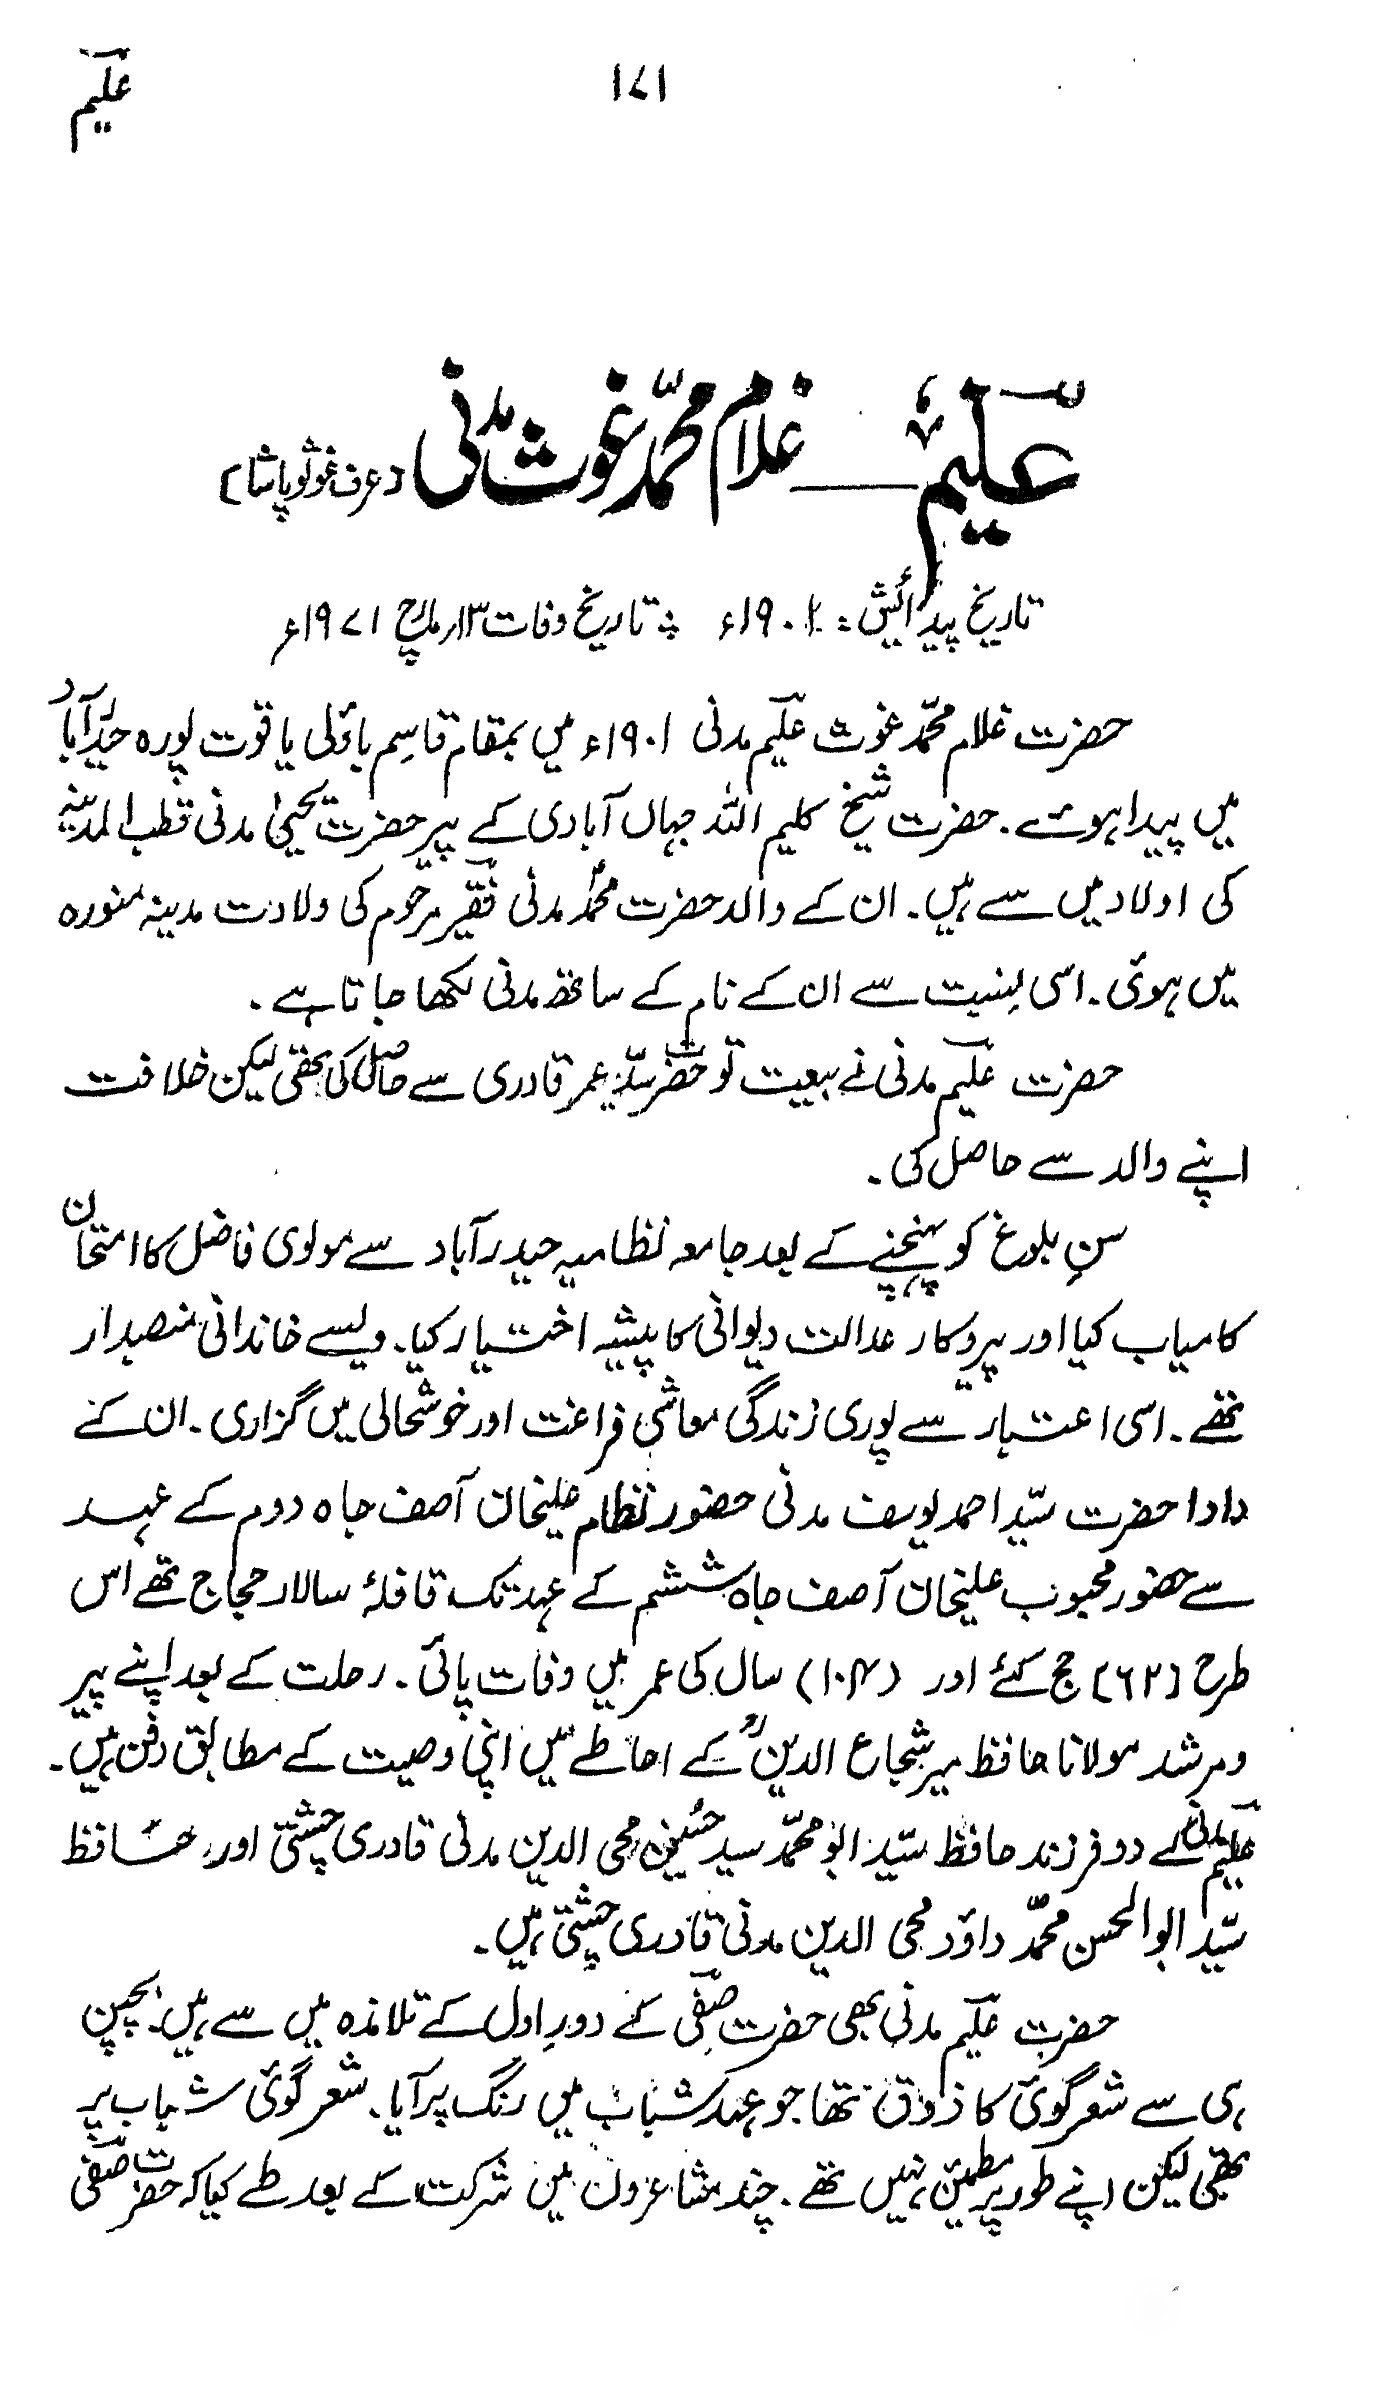 علیم
۱۷۱
علیم ــــ غلام محمّد غوث مدنی (عرف غوثو پاشا)
تاریخ پیدائش: ۱۹۰۱ء ؞ تاریخ وفات ۱۳؍مارچ ۱۹۷۱ء
حضرت غلام محمّد غوث علیم مدنی ۱۹۰۱ء میں بمقام قاسم باؤلی یاقوت پورہ حیدرآباد
میں پیدا ہوئے۔ حضرت شیخ کلیم اللہ جہاں آبادی کے پیر حضرت یحییٰ مدنی قطب المدینہ
کی اولاد میں سے ہیں۔ ان کے والد حضرت محمد مدنی فقیر مرحوم کی ولادت مدینہ منورہ
میں ہوئی۔ اسی نسبت سے ان کے نام کے ساتھ مدنی لکھا جاتا ہے۔
حضرت علیم مدنی نے بیعت تو حضرت سیّد عمر قادری سے حاصل کی تھی لیکن خلافت
اپنے والد سے حاصل کی۔
سنِ بلوغ کو پہنچنے کے بعد جامعہ نظامیہ حیدرآباد سے مولوی فاضل کا امتحان
کامیاب کیا اور پیروکار عدالت دیوانی کا پیشیہ اختیار کیا۔ ویسے خاندانی منصبدار
تھے۔ اسی اعتبار سے پوری زندگی معاشی فراغت اور خوشحالی میں گزاری۔ ان کے
دادا حضرت سیّد احمد یوسف مدنی حضور نظام علیخان آصف جاہ دوم کے عہد
سے حضور محبوب علیخان آصف جاہ ششم کے عہد تک قافلۂ سالار حجاج تھے اس
طرح (۶۲) حج کئے اور (۱۰۴) سال کی عمر میں وفات پائی۔ رحلت کے بعد اپنے پیر
و مرشد مولانا حافظ میر شجاع الدینؒ کے احاطے میں اپنی وصیت کے مطابق دفن ہیں۔
علیم مدنی کے دو فرزند حافظ سیّد ابو محمّد سید حسینی محی الدین مدنی قادری چشتی اور حافظ
سیّد ابوالحسن محمّد داؤد محی الدین مدنی قادری چشتی ہیں۔
حضرت علیم مدنی بھی حضرت صفی کے دورِ اول کے تلامذہ میں سے ہیں۔ بچپن
ہی سے شعر گوئی کا ذوق تھا جو عہد شباب میں رنگ پر آیا۔ شعر گوئی شباب پر
تھی لیکن اپنے طور پر مطمئن نہیں تھے۔ چند مشاعروں میں شرکت کے بعد طے کیا کہ حضرت صفی